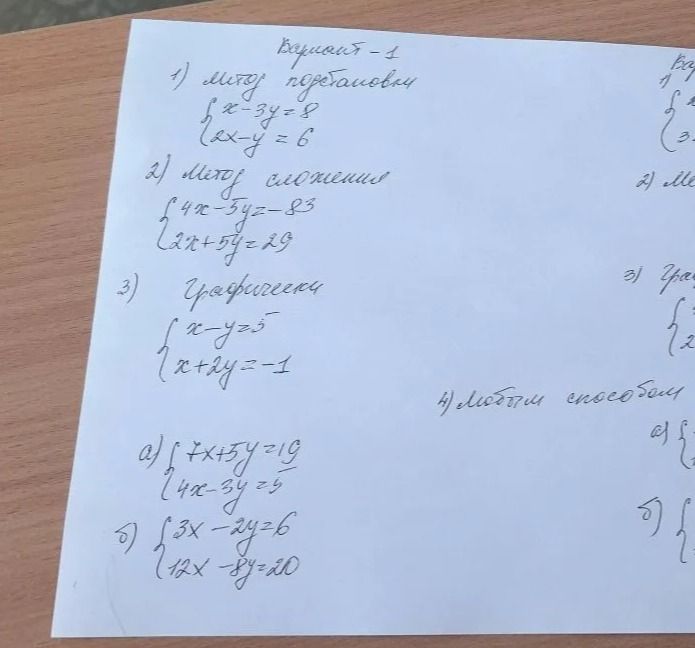 Вариант - 1
1) Метод подстановки
{ x - 3y = 8
2x - y = 6
2) Метод сложения
{ 4x - 5y = -83
2x + 5y = 29
3) Графически
{ x - y = 5
x + 2y = -1
а) { 7x + 5y = 19
4x - 3y = 5
б) { 3x - 2y = 6
12x - 8y = 20
Ва
1)
{
3
2) Ме
3) Гра
{
2
4) Любым способом
а) {
б) {